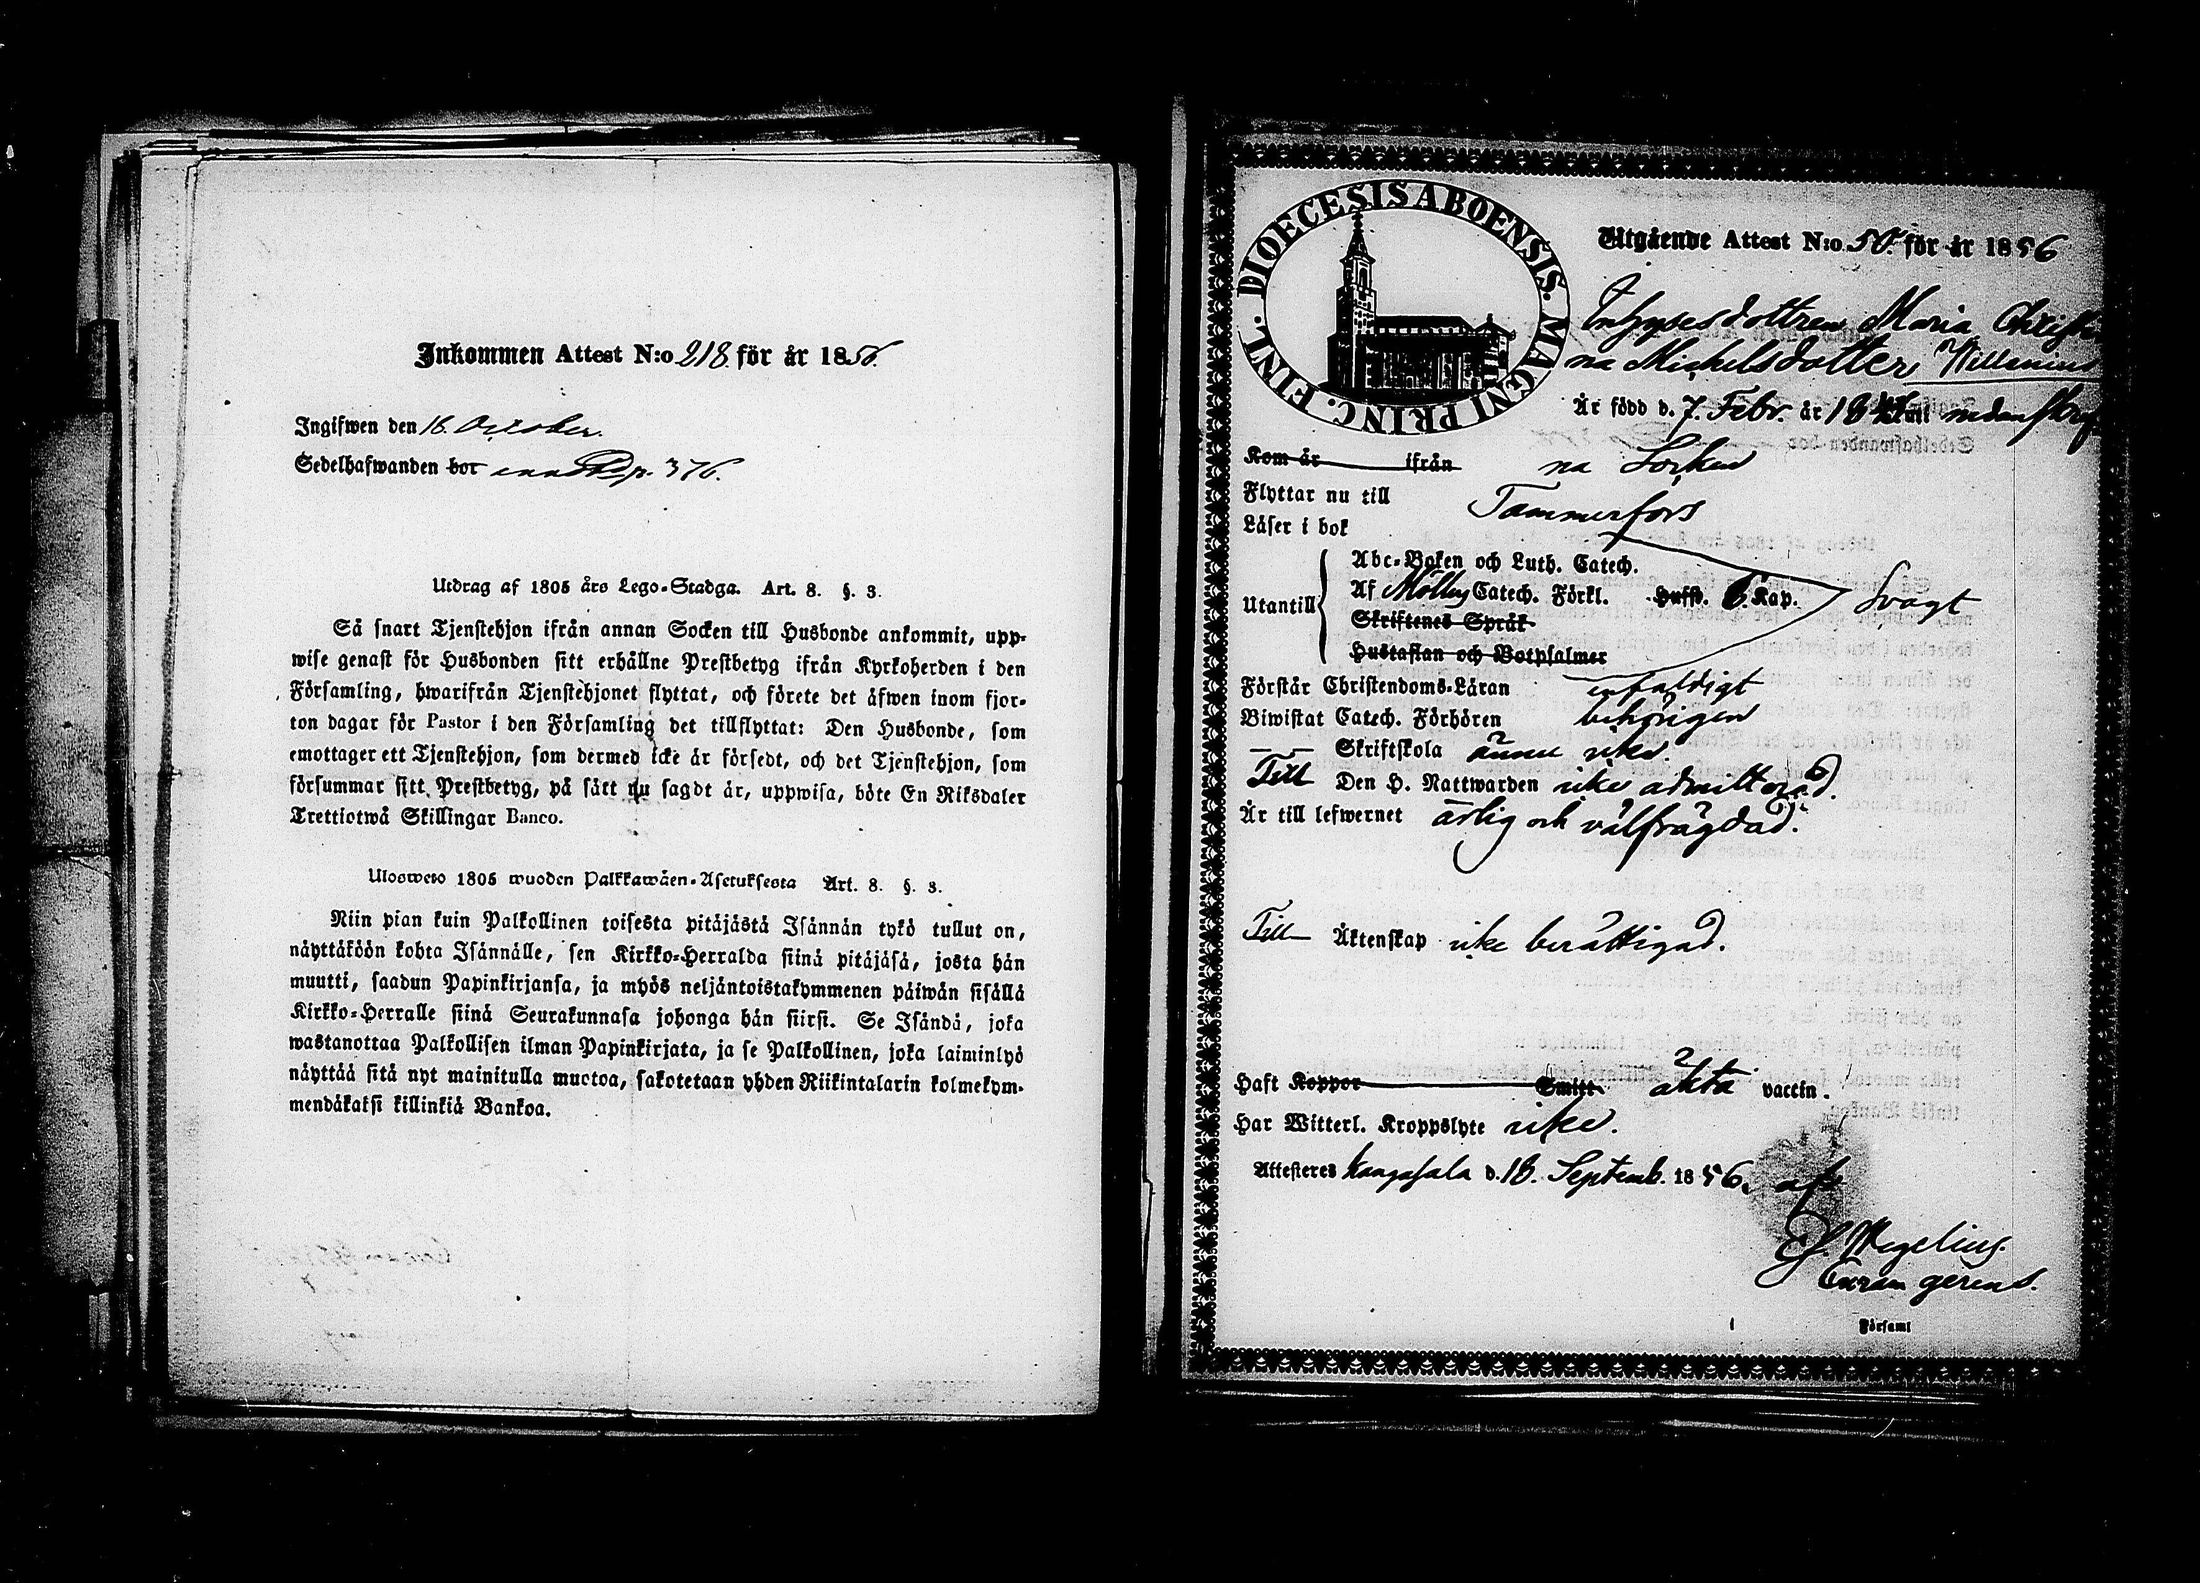 Inkommen Attest N:o 218. för år 1856.
Ingifwen den 16. October.
Sedelhafwanden bor p. 376.
Utdrag af 1805 års Lego-Stadga. Art. 8. §. 3.
Så snart Tjenstehjon ifrån annan Socken till Husbonde ankommit, upp-
wise genast för Husbonden sitt erhållne Prestbetyg ifrån Kyrkoherden i den
Församling, hwarifrån Tjenstehjonet flyttat, och förete det äfwen inom fjor-
ton dagar för Pastor i den Församling det tillflyttat: Den Husbonde, som
emottager ett Tjenstehjon, som dermed icke är försedt, och det Tjenstehjon, som
försummar sitt Prestbetyg, på sätt nu sagdt är, uppwisa, böte En Riksdaler
Trettiotwå Skillingar Banco.
Ulosweto 1805 wuoden Palkkawäen-Asetuksesta Art. 8. §. 3.
Niin pian kuin Palkollinen toisesta pitäjästä Isännän tykö tullut on,
näyttäköön kohta Isännälle, sen Kirkko-Herralda siinä pitäjäsä, josta hän
muutti, saadun Papinkirjansa, ja myös neljäntoistakymmenen päiwän sisällä
Kirkko-Herralle siinä Seurakunnasa johonga hän siirsi. Se Isändä, joka
wastanottaa Palkollisen ilman Papinkirjata, ja se Palkollinen, joka laiminlyö
näyttää sitä nyt mainitulla muotoa, sakotetaan yhden Riikintalarin kolmekym-
mendäkaksi killinkiä Bankoa.
DIOECESIS ABOENSIS. MAGNI PRINC. FINL.
Utgående Attest N:o 50. för år 1856
Inhysesdottren Maria Christi
na Michelsdotter Willenius
Är född d. 7. Febr. år 18 uti nedanskrif
Kom år ifrån na Socken
Flyttar nu till Tammerfors
Läser i bok
Utantill
Abc-Boken och Luth. Catech.
Af Möllers Catech. Förkl. Hufst. 6. Kap. Svagt
Skriftenes Språk
Hustaflan och Botpsalmer
Förstår Christendoms-Läran enfaldigt
Biwistat Catech. Förhören behörigen
Skriftskola ännu icke.
Till Den H. Nattwarden icke admitterad.
Är till lefwernet ärlig och välfrägdad.
Till Äktenskap icke berättigad.
Haft Koppor Smitt. äkta vaccin.
Har Witterl. Kroppslyte icke.
Attesteres Kangasala d. 18. Septemb. 1856. af
Megelius.
Curam gerens.
Församl